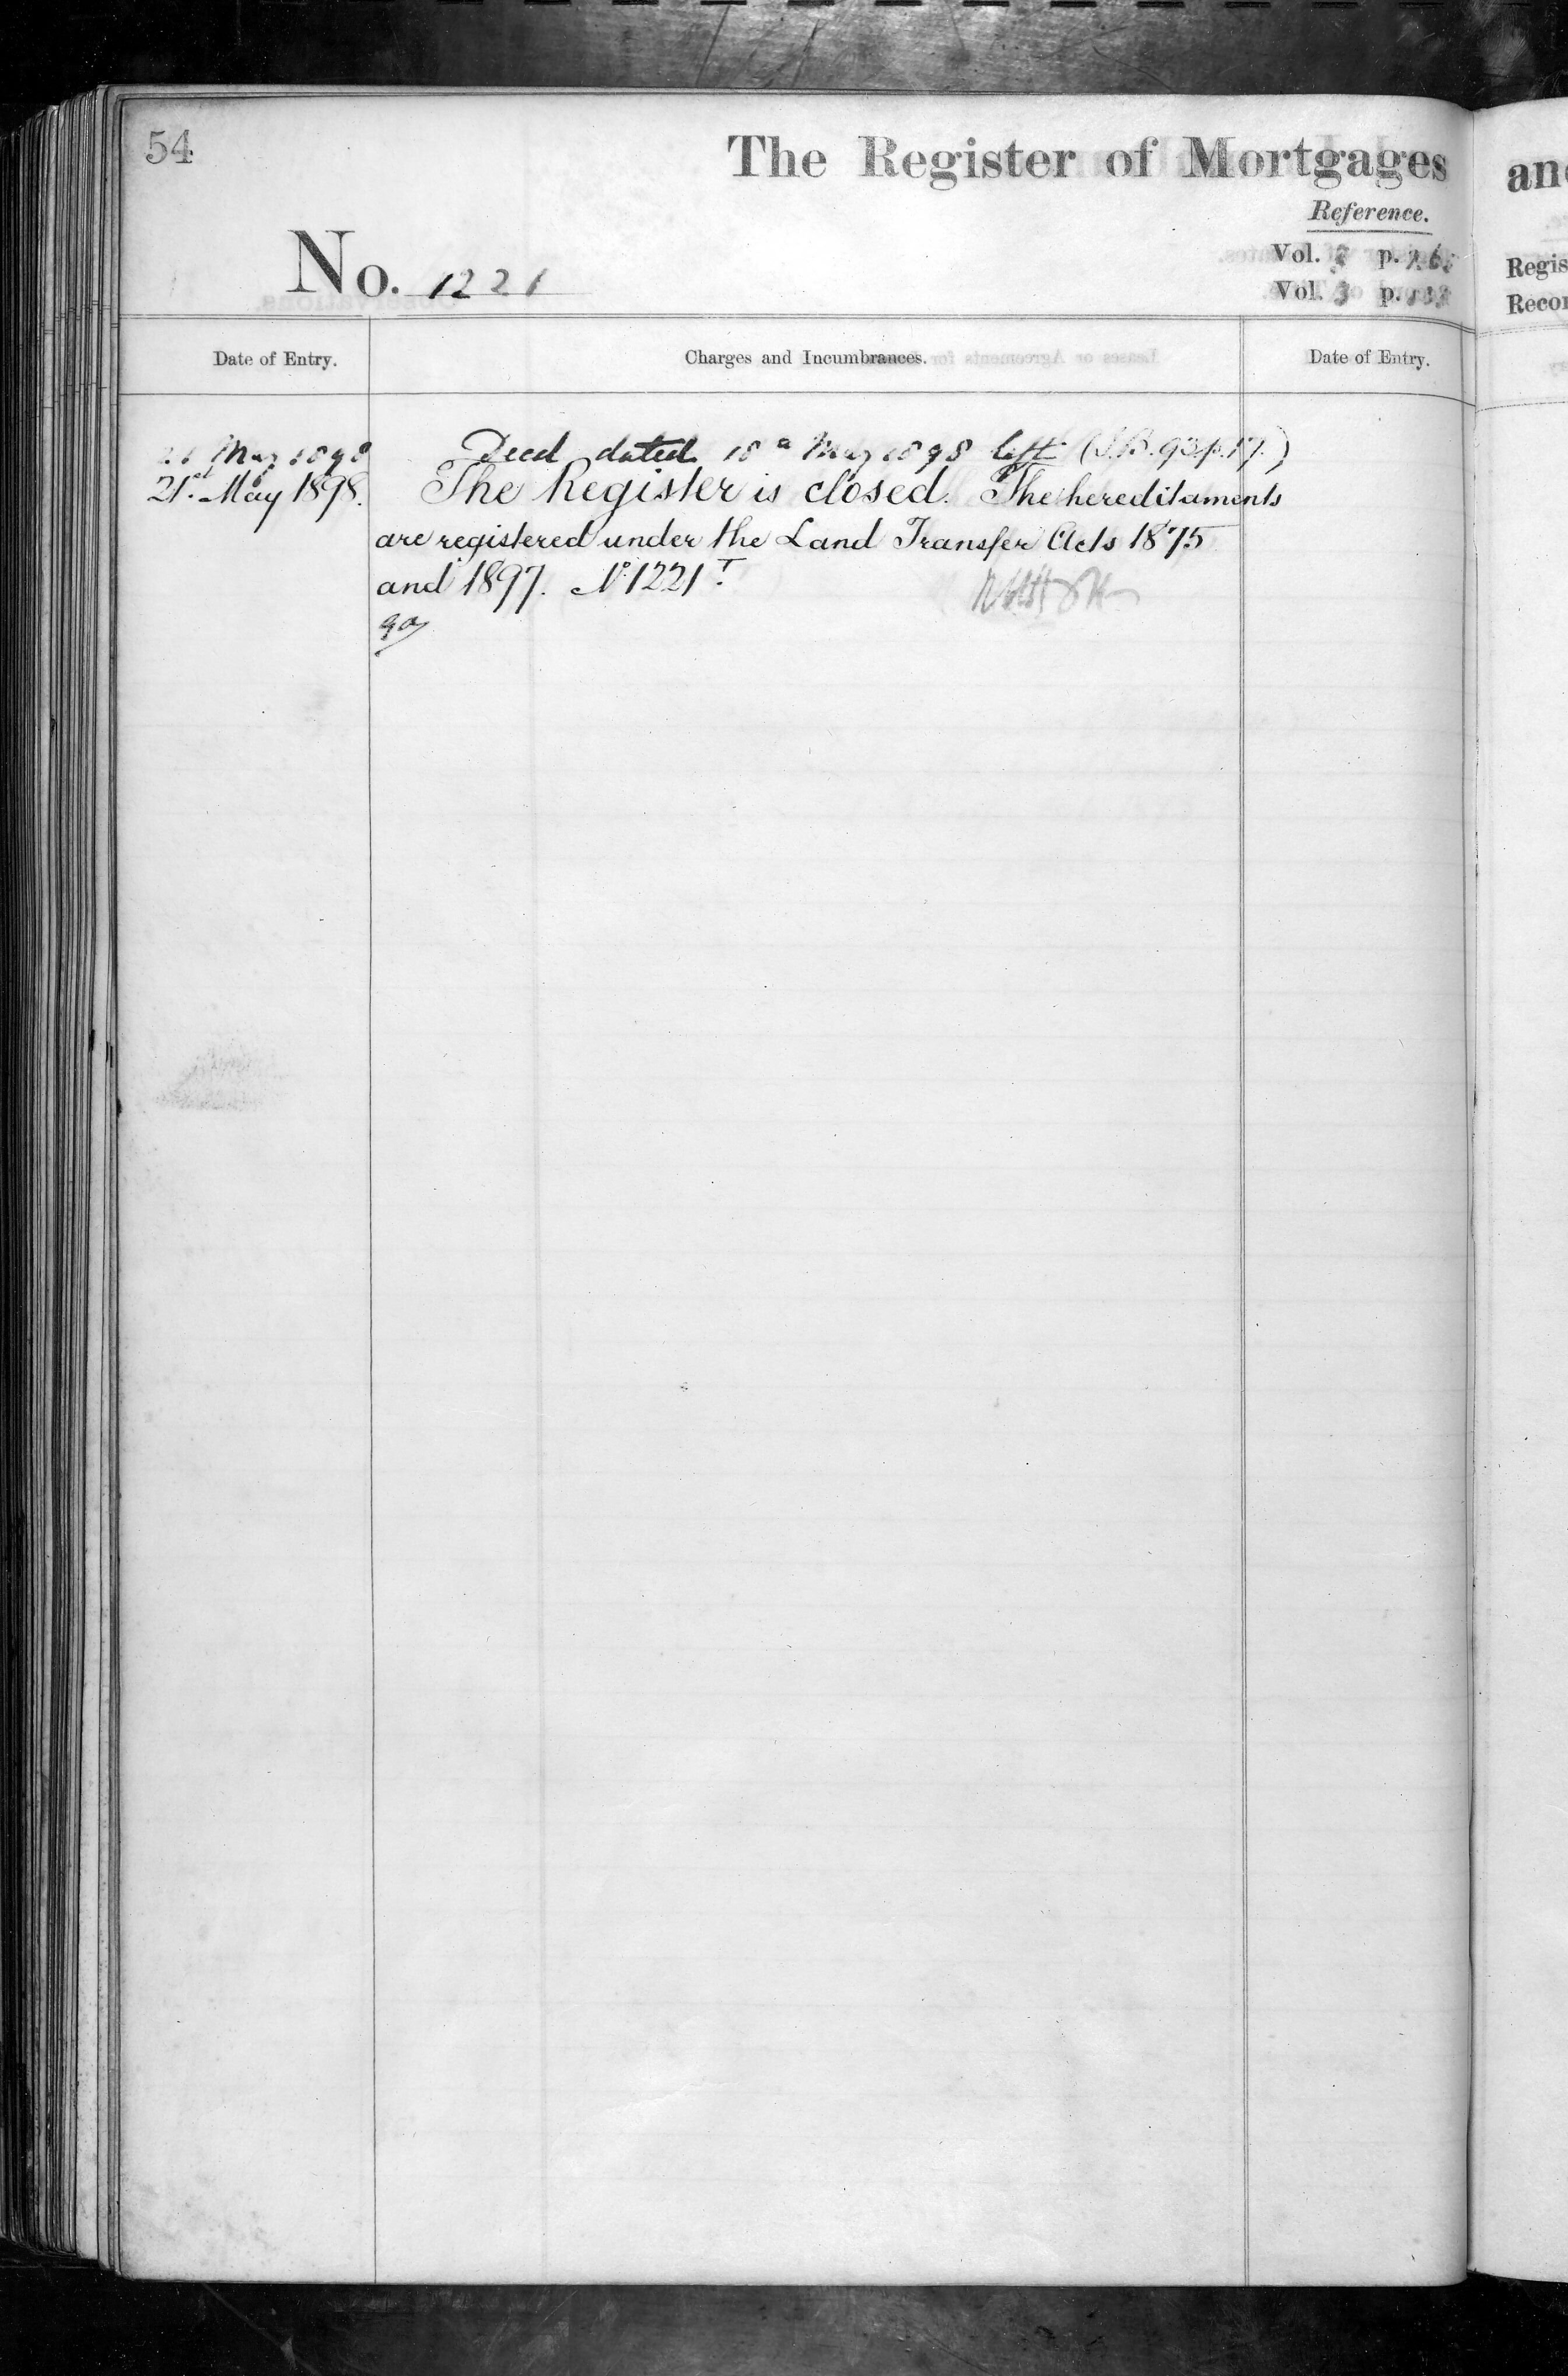 54
The Register of Mortgages
Reference.
No. 1221
Vol. 3 p.
Vol. 3 p.
Date of Entry. Charges and Incumbrances. Date of Entry.
21 May 1898 Deed dated 18 May 1898 left (S.B. 93 p. 17.)
21st May 1898. The Register is closed. The hereditaments
are registered under the Land Transfer Acts 1875
and 1897. No 1221T.
an
Regis
Recor